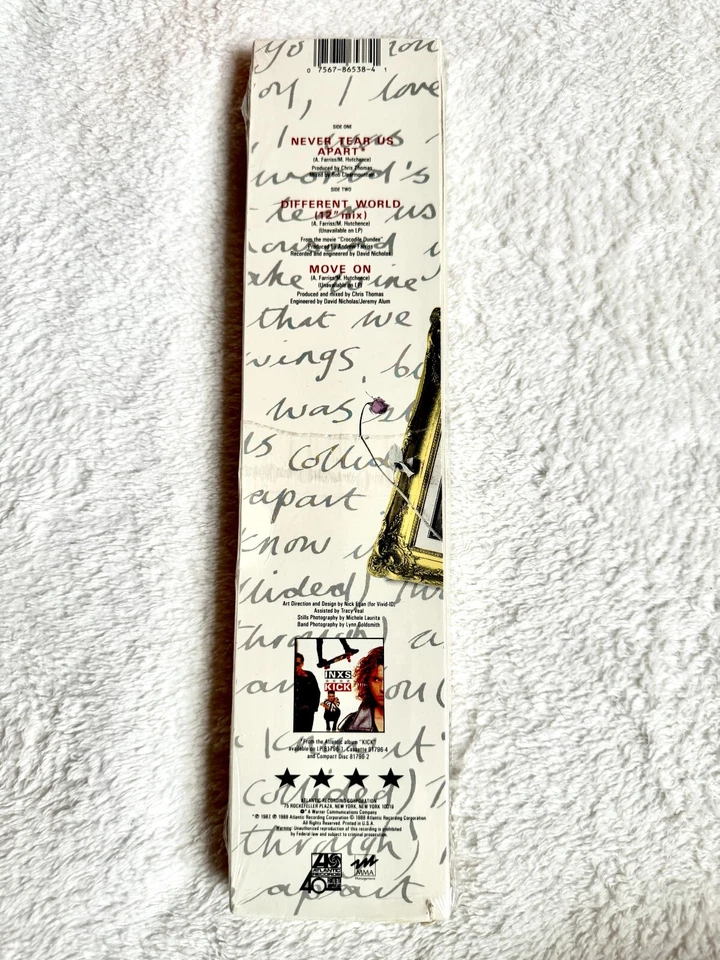 yo you
0 7567-86538-4 1
oy, I love
SIDE ONE
I was
NEVER TEAR US
APART*
(A. Farriss/M. Hutchence)
Produced by Chris Thomas
Mixed by Bob Clearmountain
world's
SIDE TWO
DIFFERENT WORLD
tear us
(12" mix)
(A. Farriss/M. Hutchence)
(Unavailable on LP)
From the movie "Crocodile Dundee"
Produced by Andrew Farriss
Recorded and engineered by David Nicholas
MOVE ON
(A. Farriss/M. Hutchence)
(Unavailable on LP)
wine
Produced and mixed by Chris Thomas
Engineered by David Nicholas/Jeremy Alum
that we
wings, bu
was
us collided
apart
know
llided)
Art Direction and Design by Nick Egan (for Vivid-ID)
Assisted by Tracy Veal
Stills Photography by Michele Laurita
Band Photography by Lynn Goldsmith
through)
INXS
KICK
*From the Atlantic album "KICK"
available on LP 81796-1, Cassette 81796-4
and Compact Disc 81796-2
(collided)
ATLANTIC RECORDING CORPORATION
75 ROCKEFELLER PLAZA, NEW YORK, NEW YORK 10019
A Warner Communications Company
*℗ 1987, ℗ 1988 Atlantic Recording Corporation © 1988 Atlantic Recording Corporation
All Rights Reserved. Printed in U.S.A.
Warning: Unauthorized reproduction of this recording is prohibited
by Federal law and subject to criminal prosecution.
through)
ATLANTIC
40
MMA
Management
apart